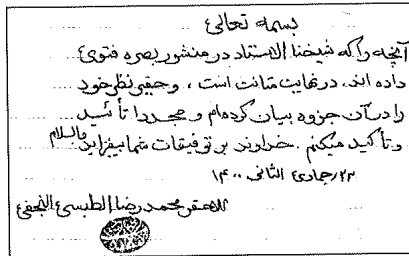 بسمه تعالی
آنچه را که شیخنا الاستاد در منشور بصره فتوی
داده اند. در نهایت متانت است، و حقیر نظر خود
را در آن جزوه بیان کرده ام و مجددا تأئید
و تأکید میکنم. خداوند بر توفیقات شما بیفزاید والسلام
۲۳ جمادی الثانی ۱۴۰۰
الاحقر محمد رضا الطبسی النجفی